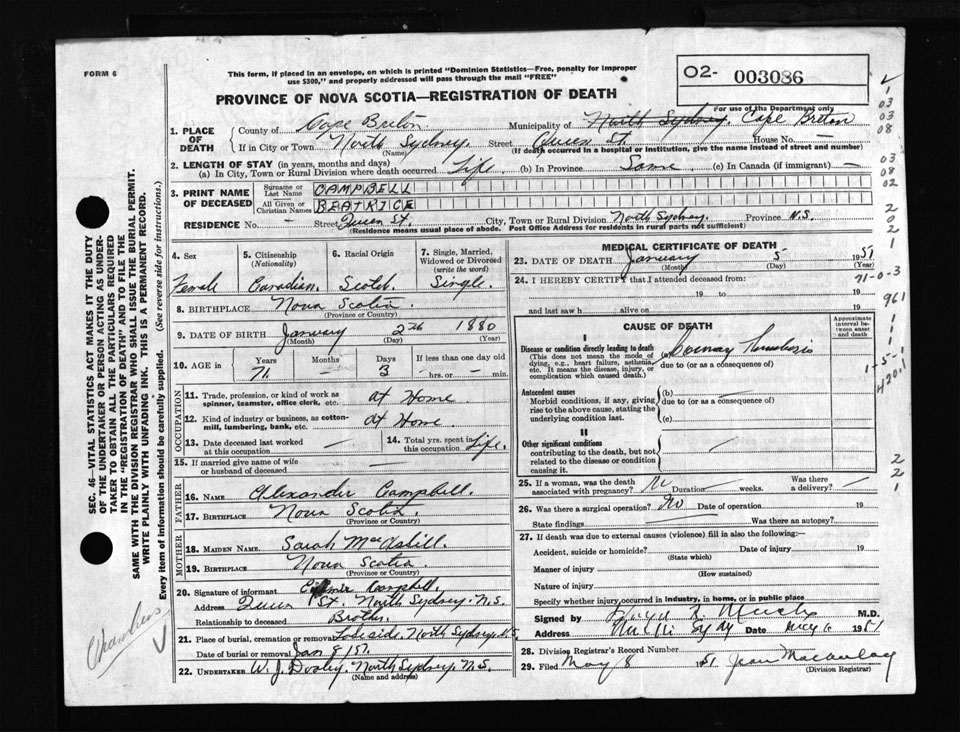 FORM 6
This form, if placed in an envelope, on which is printed "Dominion Statistics—Free, penalty for improper
use $300," and properly addressed will pass through the mail "FREE"
02- 003086
For use of the Department only
PROVINCE OF NOVA SCOTIA—REGISTRATION OF DEATH
1. PLACE OF DEATH County of Cape Breton Municipality of North Sydney. Cape Breton
If in City or Town North Sydney. (Name) Street Queen St. House No.
(If death occurred in a hospital or institution, give the name instead of street and number)
2. LENGTH OF STAY (in years, months and days)
(a) In City, Town or Rural Division where death occurred Life. (b) In Province Same (c) In Canada (if immigrant) —
3. PRINT NAME OF DECEASED Surname or Last Name CAMPBELL
All Given or Christian Names BEATRICE
RESIDENCE No. — Street Queen St. City, Town or Rural Division North Sydney. Province N.S.
(Residence means usual place of abode. Post Office Address for residents in rural parts not sufficient)
4. Sex Female
5. Citizenship (Nationality) Canadian.
6. Racial Origin Scotch.
7. Single, Married, Widowed or Divorced (write the word) Single.
8. BIRTHPLACE Nova Scotia (Province or Country)
9. DATE OF BIRTH January 2nd 1880
(Month) (Day) (Year)
10. AGE in Years 71 Months — Days 3 If less than one day old — hrs. or — min.
OCCUPATION
11. Trade, profession, or kind of work as spinner, teamster, office clerk, etc. At Home
12. Kind of industry or business, as cotton-mill, lumbering, bank, etc. At Home
13. Date deceased last worked at this occupation —
14. Total yrs. spent in this occupation Life.
15. If married give name of wife or husband of deceased —
FATHER
16. NAME Alexander Campbell.
17. BIRTHPLACE Nova Scotia. (Province or Country)
MOTHER
18. MAIDEN NAME Sarah MacAskill.
19. BIRTHPLACE Nova Scotia. (Province or Country)
20. Signature of informant Campbell
Address Queen St. North Sydney. N.S.
Relationship to deceased Brother
21. Place of burial, cremation or removal Lakeside, North Sydney, N.S.
Date of burial or removal Jan 8 '51.
22. UNDERTAKER W. J. Dooley. North Sydney. N.S.
(Name and address)
MEDICAL CERTIFICATE OF DEATH
23. DATE OF DEATH January 5 1951
(Month) (Day) (Year)
24. I HEREBY CERTIFY that I attended deceased from: 71-0-3
19 to 19
and last saw h alive on 19
CAUSE OF DEATH
Approximate interval between onset and death
I
Disease or condition directly leading to death
(This does not mean the mode of dying, e.g., heart failure, asthenia, etc. It means the disease, injury, or complication which caused death.)
(a) Coronary Thrombosis
due to (or as a consequence of)
Antecedent causes
Morbid conditions, if any, giving rise to the above cause, stating the underlying condition last.
(b) —
due to (or as a consequence of)
(c)
II
Other significant conditions
contributing to the death, but not related to the disease or condition causing it.
25. If a woman, was the death associated with pregnancy? No Duration — weeks. Was there a delivery? —
26. Was there a surgical operation? No Date of operation 19
State findings Was there an autopsy?
27. If death was due to external causes (violence) fill in also the following:—
Accident, suicide or homicide? (State which) Date of injury 19
Manner of injury (How sustained)
Nature of injury
Specify whether injury occurred in industry, in home, or in public place
Signed by M.D.
Address Sydney Date 1951
28. Division Registrar's Record Number
29. Filed May 8 1951 Jean Macaulay
(Division Registrar)
SEC. 46—VITAL STATISTICS ACT MAKES IT THE DUTY
OF THE UNDERTAKER OR PERSON ACTING AS UNDER-
TAKER TO OBTAIN ALL THE PARTICULARS REQUIRED
IN THE "REGISTRATION OF DEATH" AND TO FILE THE
SAME WITH THE DIVISION REGISTRAR WHO SHALL ISSUE THE BURIAL PERMIT.
WRITE PLAINLY WITH UNFADING INK. THIS IS A PERMANENT RECORD.
Every item of information should be carefully supplied. (See reverse side for instructions.)
1
03
03
08
03
08
02
2
0
2
1
961
2
2
1